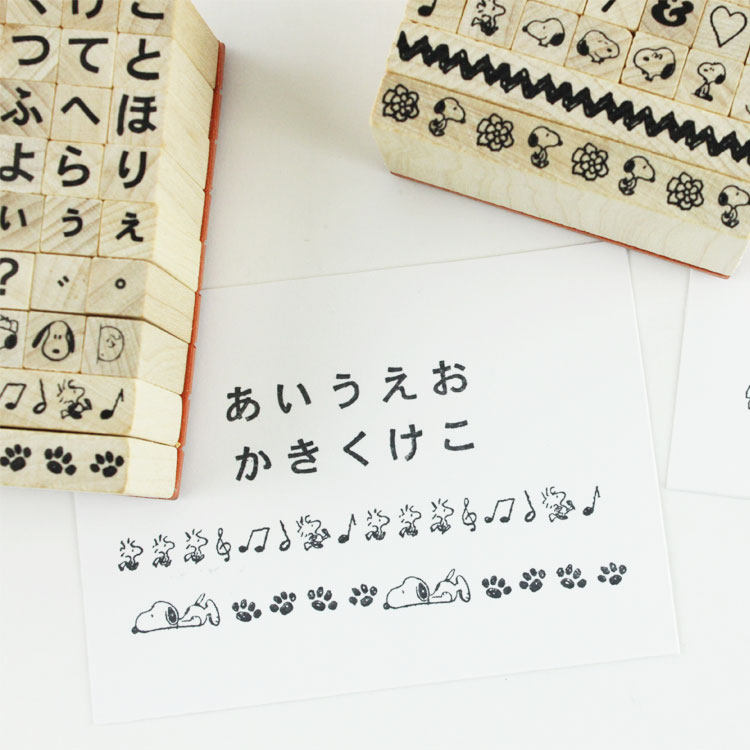 こ
つてと
ふへほ
よらり
ぃぅぇ
?゛。
&
あいうえお
かきくけこ